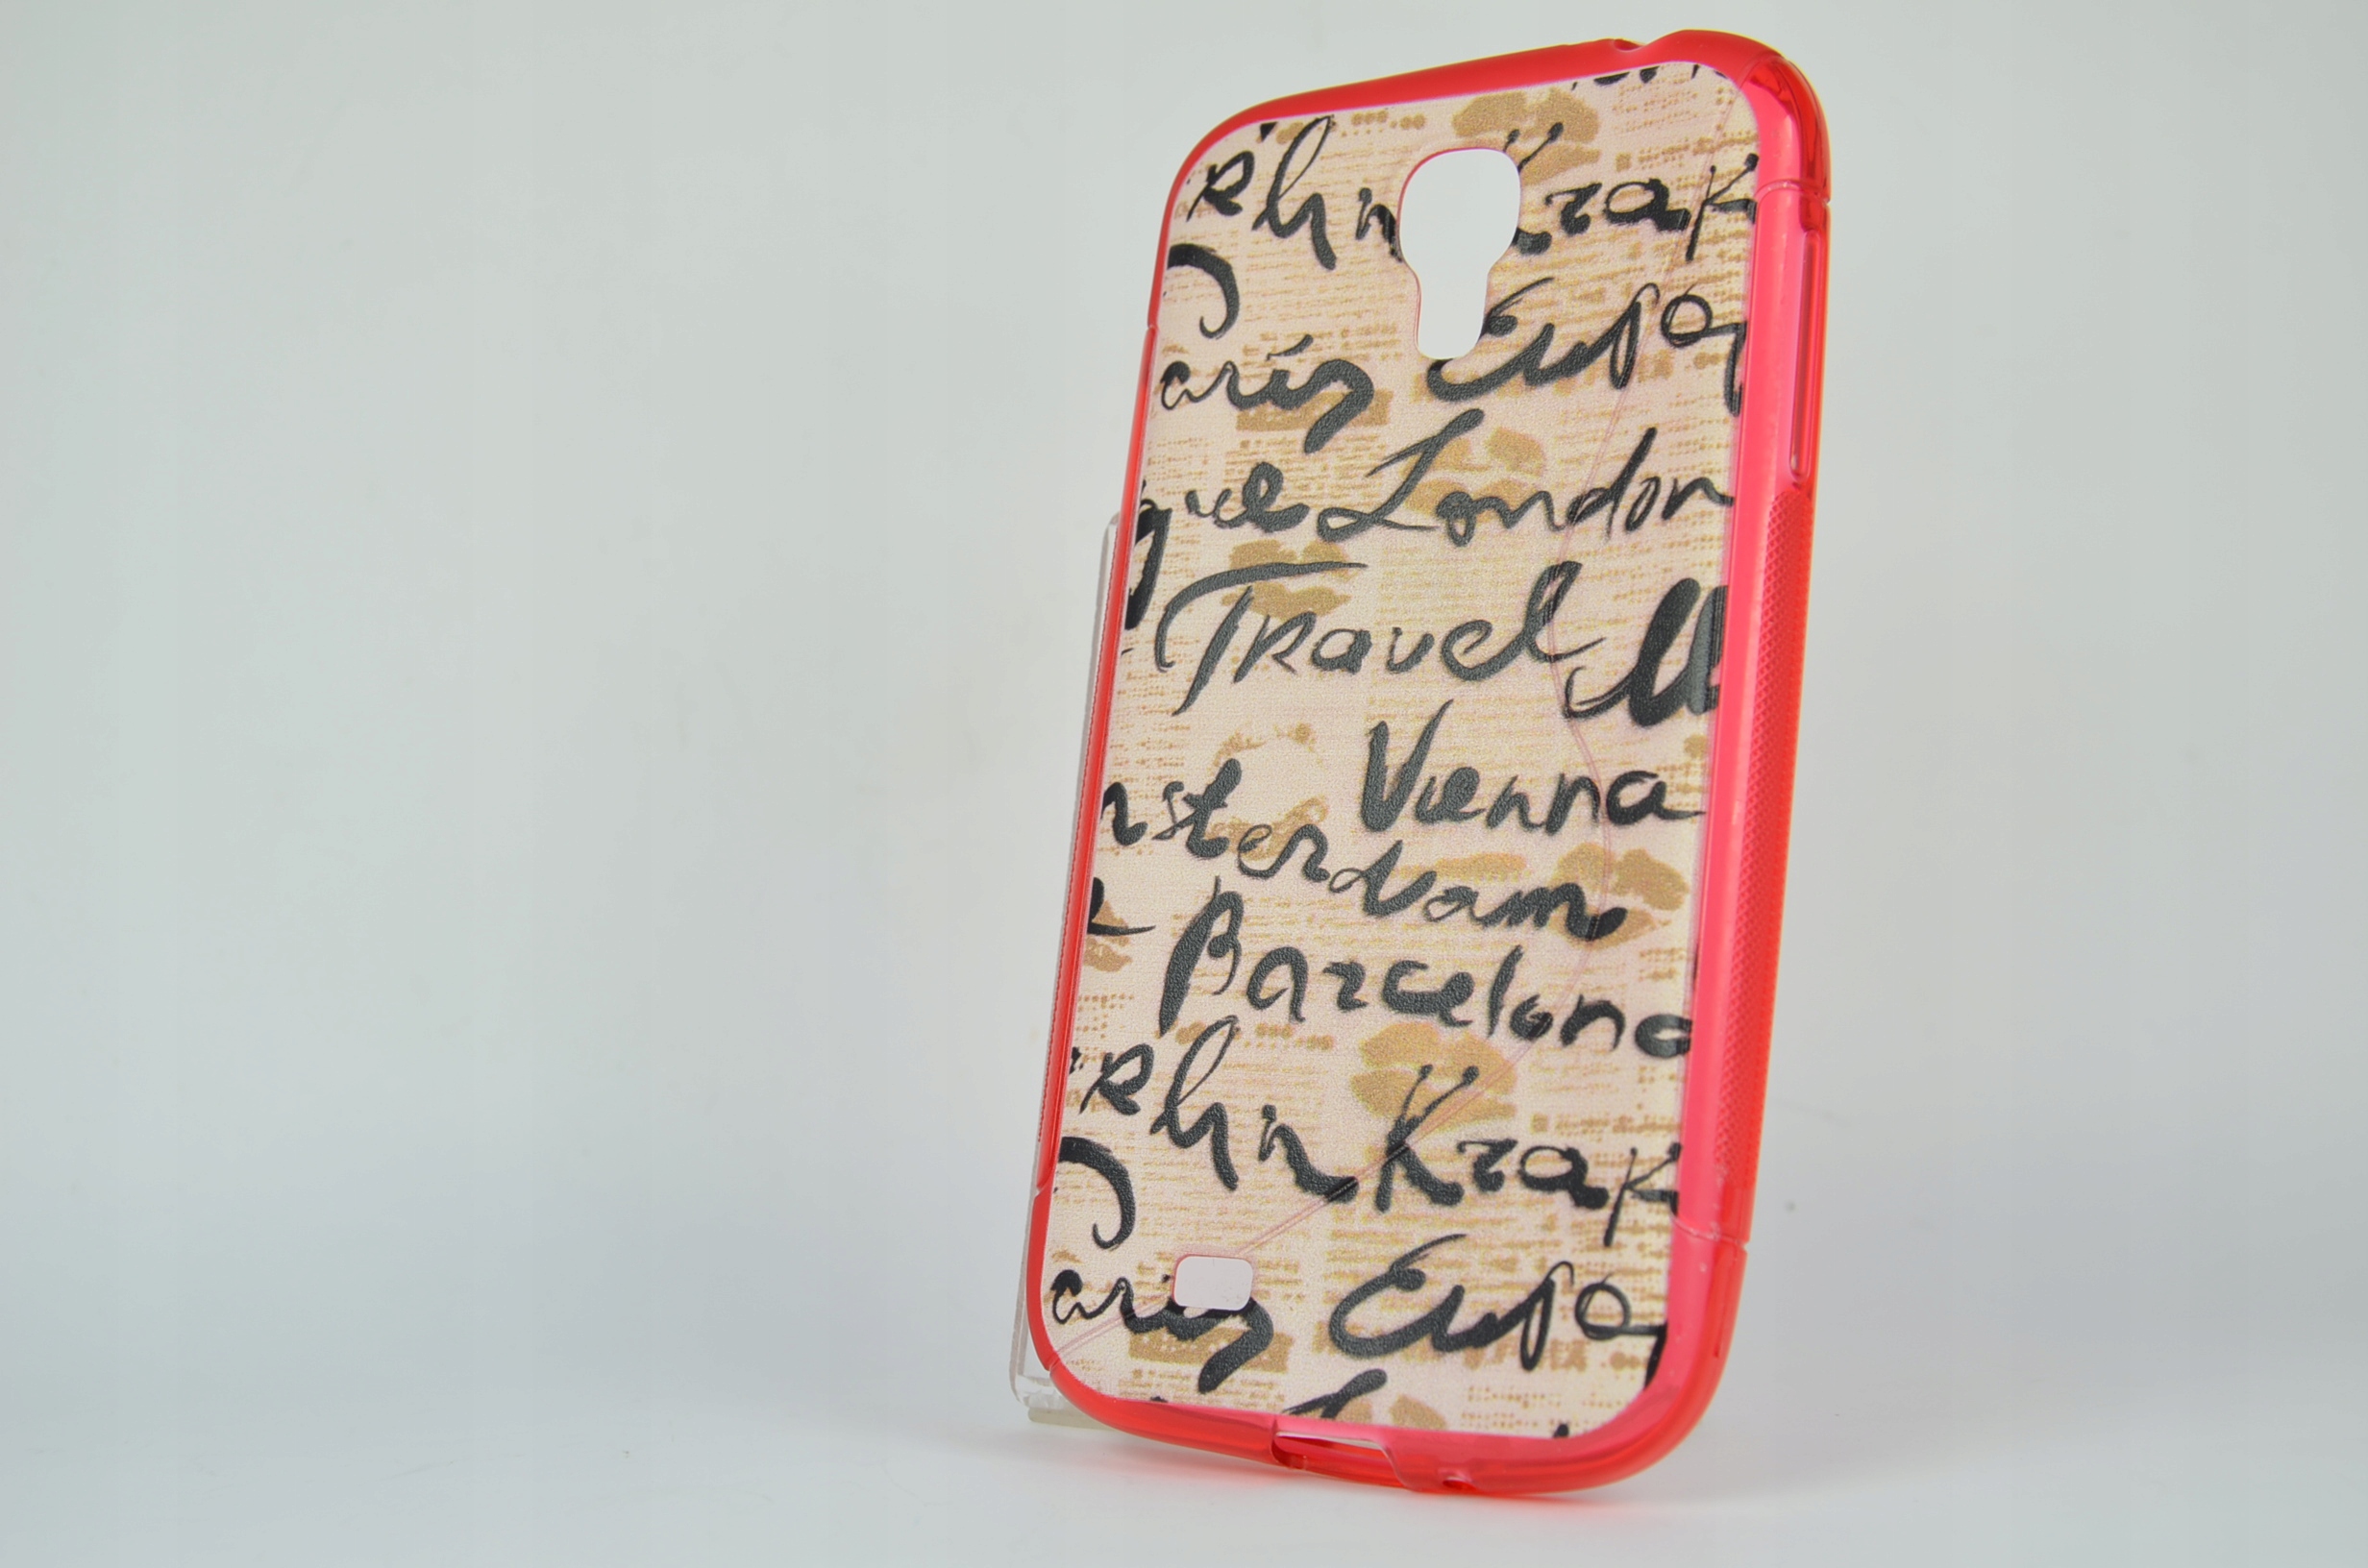 rlin Krak
aris Euro
gue London
Travel
Vienna
nsterdam
Barcelona
rlin Krak
aris Euro